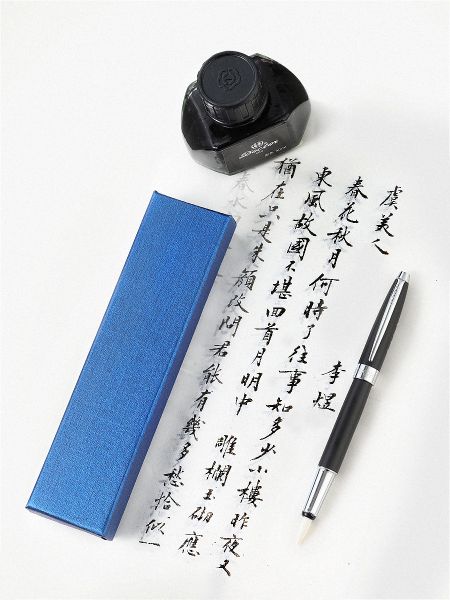 虞美人 李煜
春花秋月何時了往事知多少小樓昨夜又
東風故國不堪回首月明中雕欄玉砌應
猶在只是朱顏改問君能有幾多愁恰似一
春水